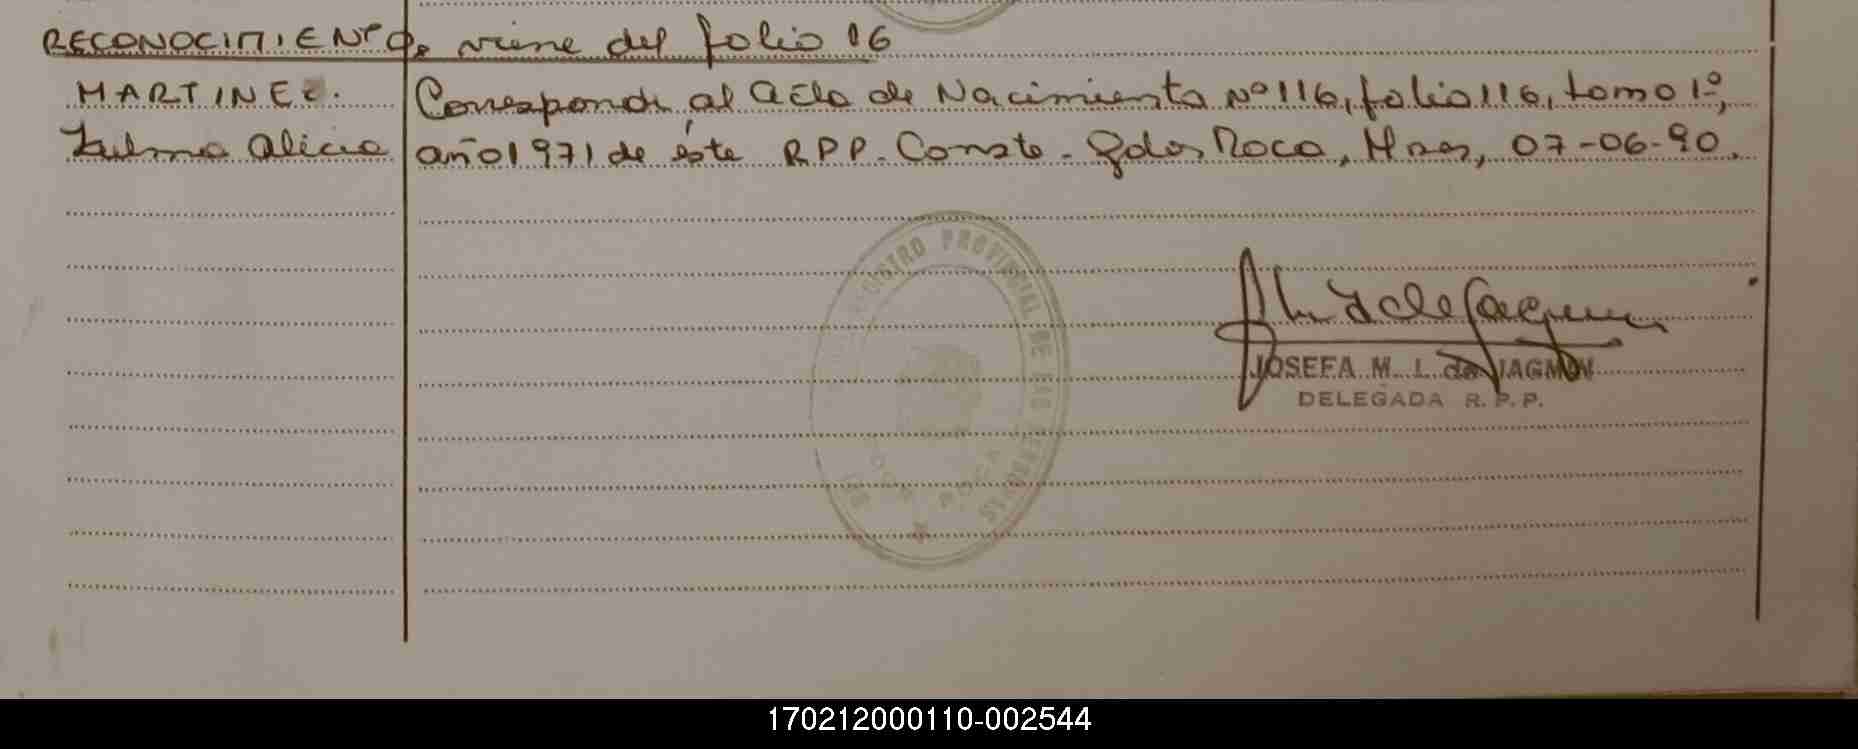 RECONOCIMIENTO, viene del folio 16
MARTINEZ.
Zulma Alicia
Corresponde al Acta de Nacimiento Nº 116, folio 116, tomo 1º,
año 1971 de éste R.P.P. Conste - Gdor Roca, Mzas, 07-06-90.
REGISTRO PROVINCIAL DE LAS PERSONAS
ROCA
JOSEFA M. L. de JAGMIN
DELEGADA R. P. P.
170212000110-002544